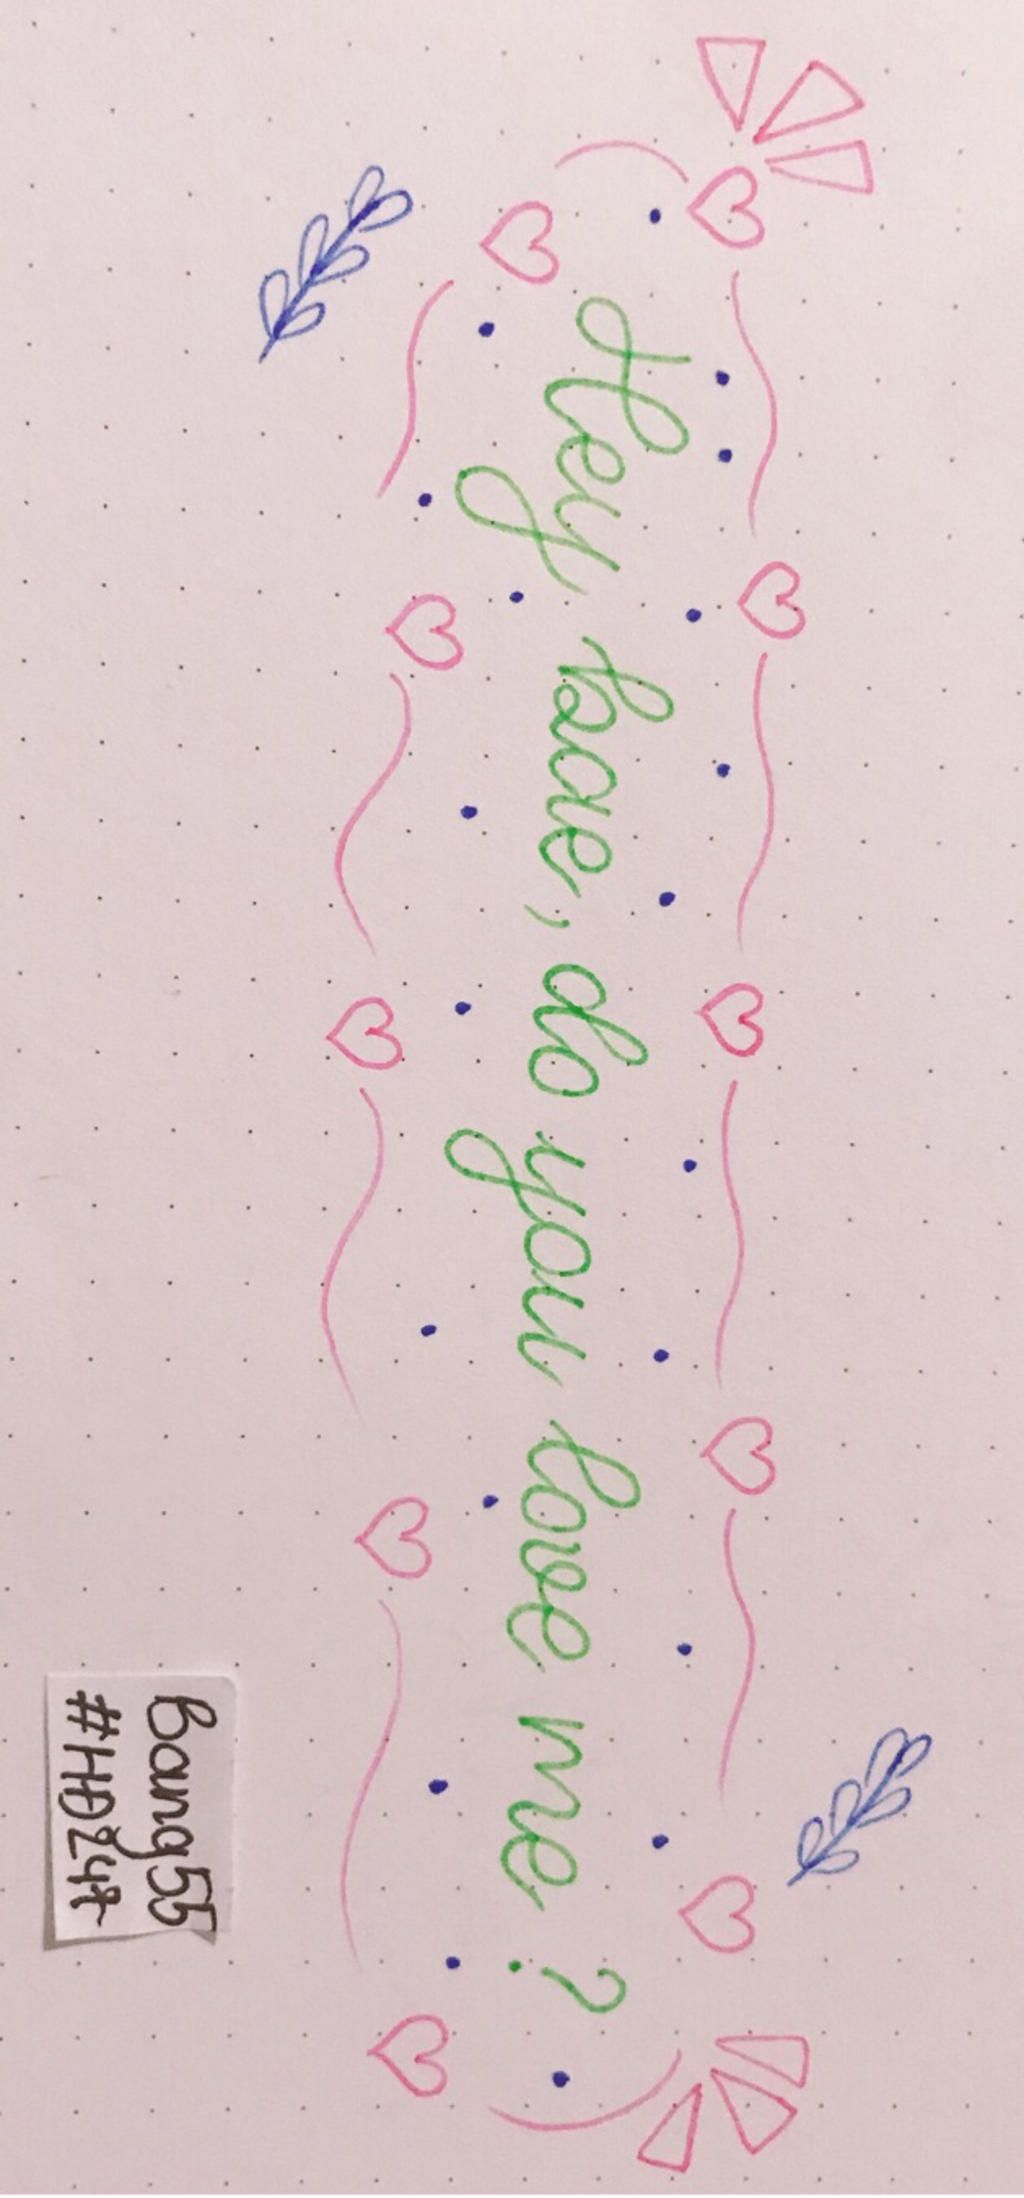 Hey bae, do you love me?
Bang55
#HĐ247